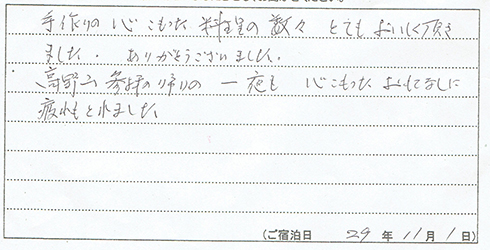 手作りの心こもった料理の数々とてもおいしく頂き
ました. ありがとうございました.
高野山参拝の帰りの一夜も心こもったおもてなしに
疲れもとれました
(ご宿泊日 29年 11月 1日)